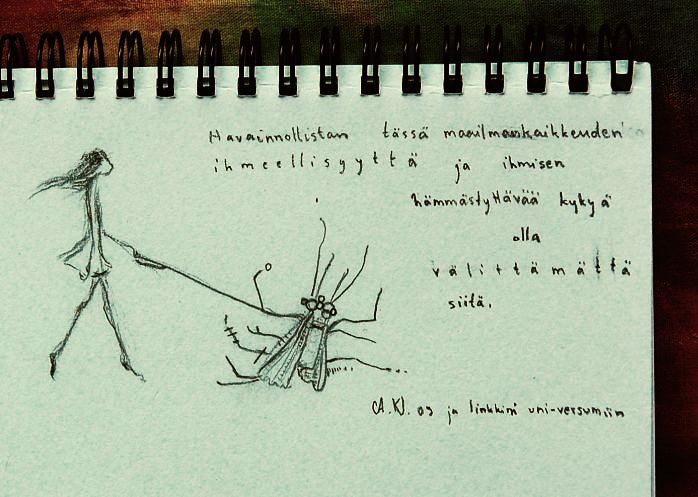 Havainnollistan tässä maailmankaikkeuden
ihmeellisyyttä ja ihmisen
hämmästyttävää kykyä
olla
välittämättä
siitä.
A.N. 09 ja linkkini uni-versumiin